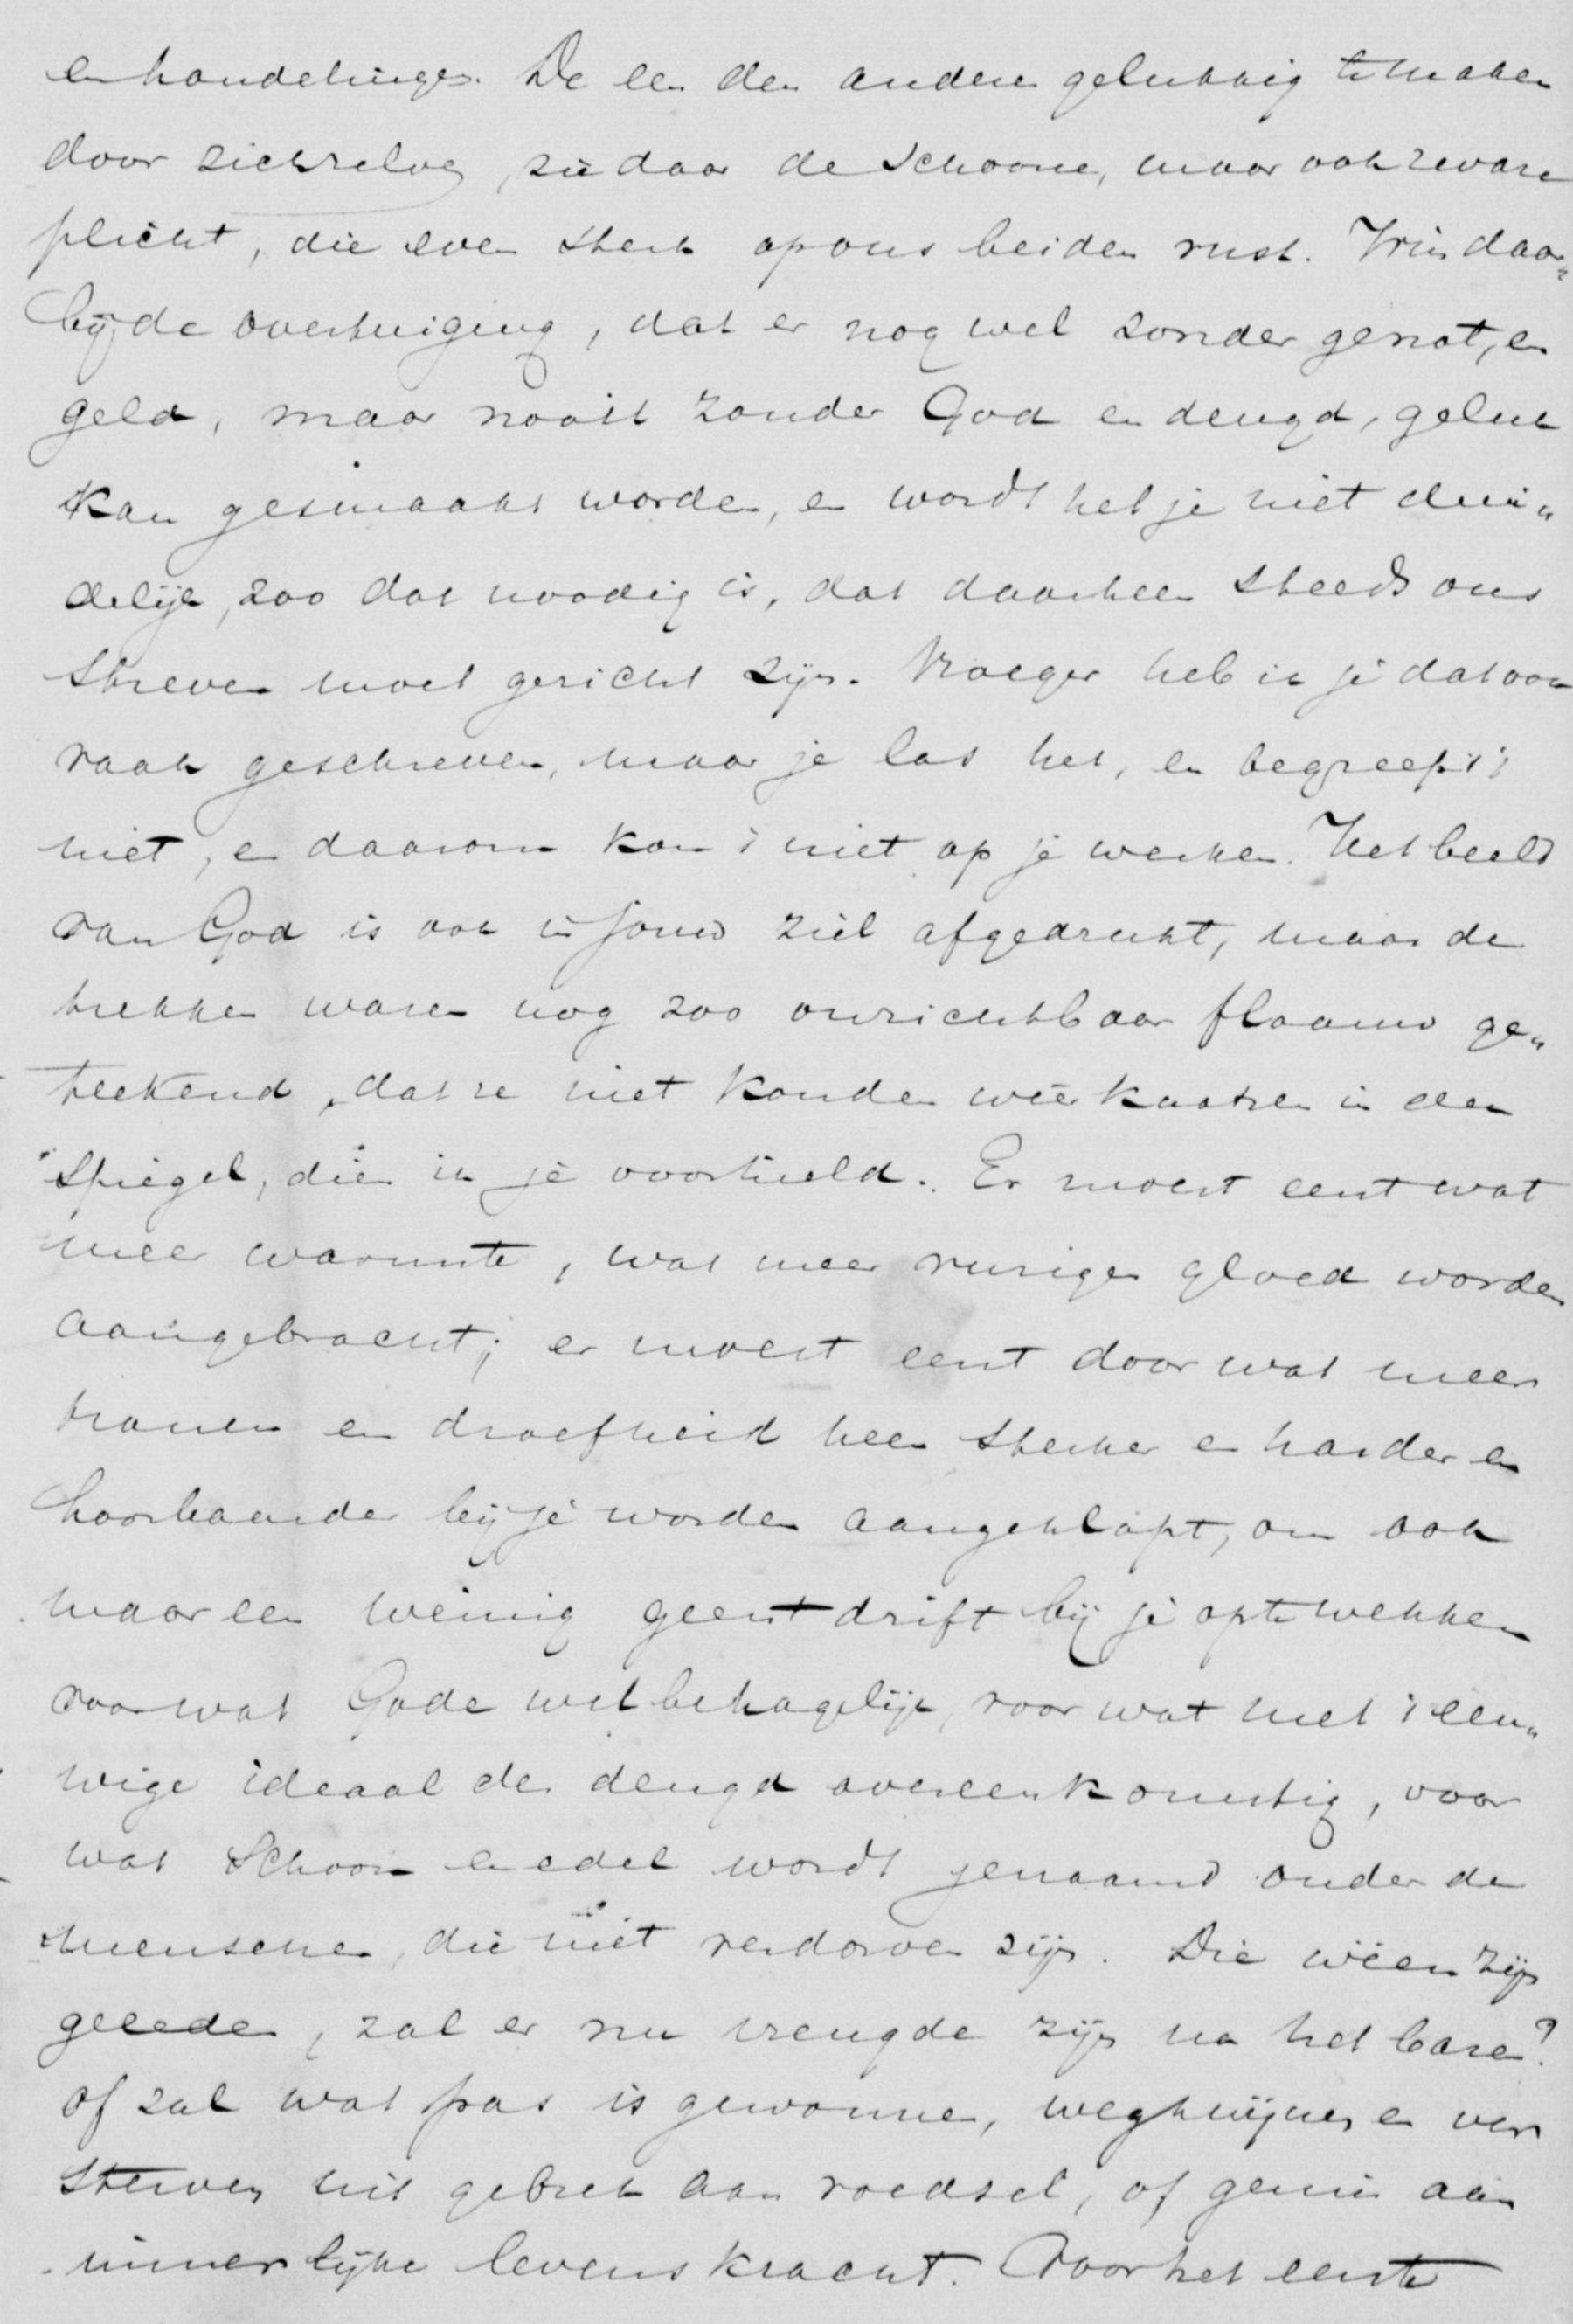 en handelingen. De een den anderen gelukkig te maken
door zichzelve, zie daar de schoone, maar ook zware
plicht, die even sterk op ons beiden rust. Win daar„
bij de overtuiging, dat er nog wel zonder genot, en
geld, maar nooit zonder God en deugd, geluk
kan gesmaakt worden, en wordt het je niet dui„
delijk, zoo dat noodig is, dat daarheen steeds ons
streven moet gericht zijn. Vroeger heb ik je dat ook
vaak geschreven, maar je las het, en begreep 't
niet, en daarom kon 't niet op je werken. Het beeld
van God is ook in jouw ziel afgedrukt, maar de
trekken waren nog zoo onzichtbaar flaauw ge„
teekend, dat ze niet konden weerkaatsen in den
spiegel, dien ik je voorhield. Er moest eerst wat
meer warmte, wat meer vurige gloed worden
aangebracht; er moest eerst door wat meer
tranen en droefheid heen sterker en harder en
hoorbaarder bij je worden aangeklopt, om ook
maar een weinig geestdrift bij je op te wekken
voor wat Gode welbehagelijk, voor wat met 't eeu„
wige ideaal der deugd overeenkomstig, voor
wat schoon en edel wordt genaamd onder de
menschen, die niet verdorven zijn. Die weën zijn
geleden, zal er nu vreugde zijn na het baren?
of zal wat pas is gewonnen, wegkwijnen en ver
sterven uit gebrek aan voedsel, of gemis aan
innerlijke levenskracht. Voor het eerste